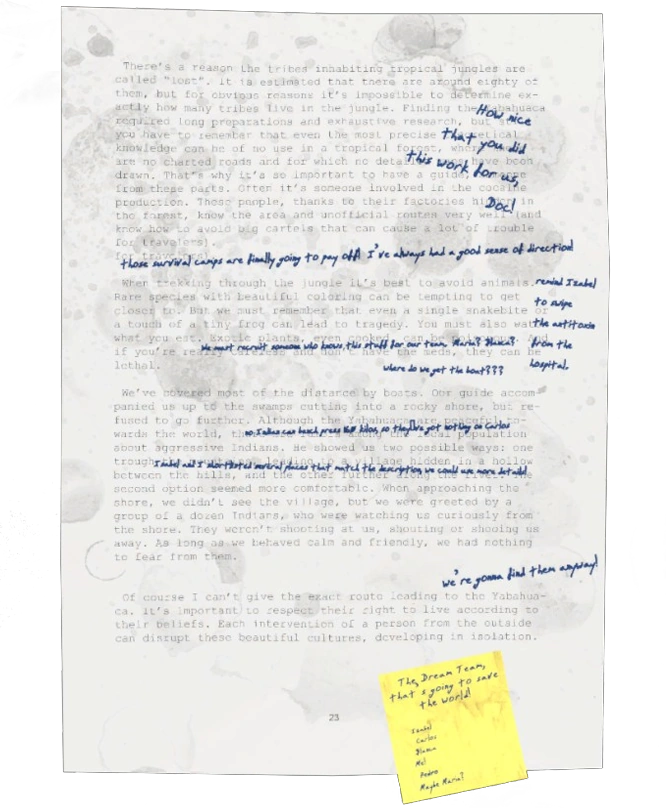 There's a reason the tribes inhabiting tropical jungles are
called "lost". It is estimated that there are around eighty of
them, but for obvious reasons it's impossible to determine ex-
actly how many tribes live in the jungle. Finding the Yabahuaca
required long preparations and exhaustive research, but
you have to remember that even the most precise theoretical
knowledge can be of no use in a tropical forest, where
are no charted roads and for which no detailed have been
drawn. That's why it's so important to have a guide,
from these parts. Often it's someone involved in the cocaine
production. These people, thanks to their factories hidden in
the forest, know the area and unofficial routes very well (and
know how to avoid big cartels that can cause a lot of trouble
for travelers).
How nice
that you did
this work for us,
Doc!
those survival camps are finally going to pay off! I've always had a good sense of direction!
When trekking through the jungle it's best to avoid animals.
Rare species with beautiful coloring can be tempting to get
closer to. But we must remember that even a single snakebite or
a touch of a tiny frog can lead to tragedy. You must also watch
what you eat. Exotic plants, even
if you're really careless and don't have the meds, they can be
lethal.
remind Izabel
to swipe
the antitoxin
from the
hospital.
We must recruit someone who knows this stuff for our team. Maria? Blanca?
where do we get the boat???
We've covered most of the distance by boats. Our guide accom-
panied us up to the swamps cutting into a rocky shore, but re-
fused to go further. Although the Yabahuaca are peaceful to-
wards the world, population
about aggressive Indians. He showed us two possible ways: one
trough leading to a village hidden in a hollow
between the hills, and the other further along the
second option seemed more comfortable. When approaching the
shore, we didn't see the village, but we were greeted by a
group of a dozen Indians, who were watching us curiously from
the shore. They weren't shooting at us, shouting or shooing us
away. As long as we behaved calm and friendly, we had nothing
to fear from them.
can bench press kilos, so they've got nothing on Carlos
Izabel and I shortlisted several places that match the description, we could use more details!
we're gonna find them anyway!
Of course I can't give the exact route leading to the Yabahua-
ca. It's important to respect their right to live according to
their beliefs. Each intervention of a person from the outside
can disrupt these beautiful cultures, developing in isolation.
23
The Dream Team,
that's going to save
the world!
Izabel
Carlos
Blanca
Mel
Pedro
Maybe Maria?